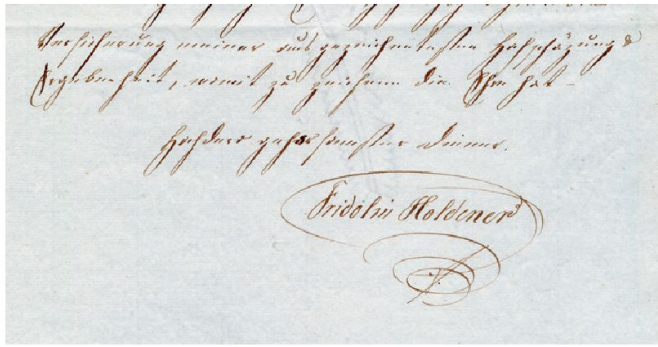 Versicherung meiner ausgezeichnetesten Hochschäzung &
Ergebenheit, womit zu zeichnen die Ehre hat
Hochders gehorsamster Diener.
Fridolin Holdener